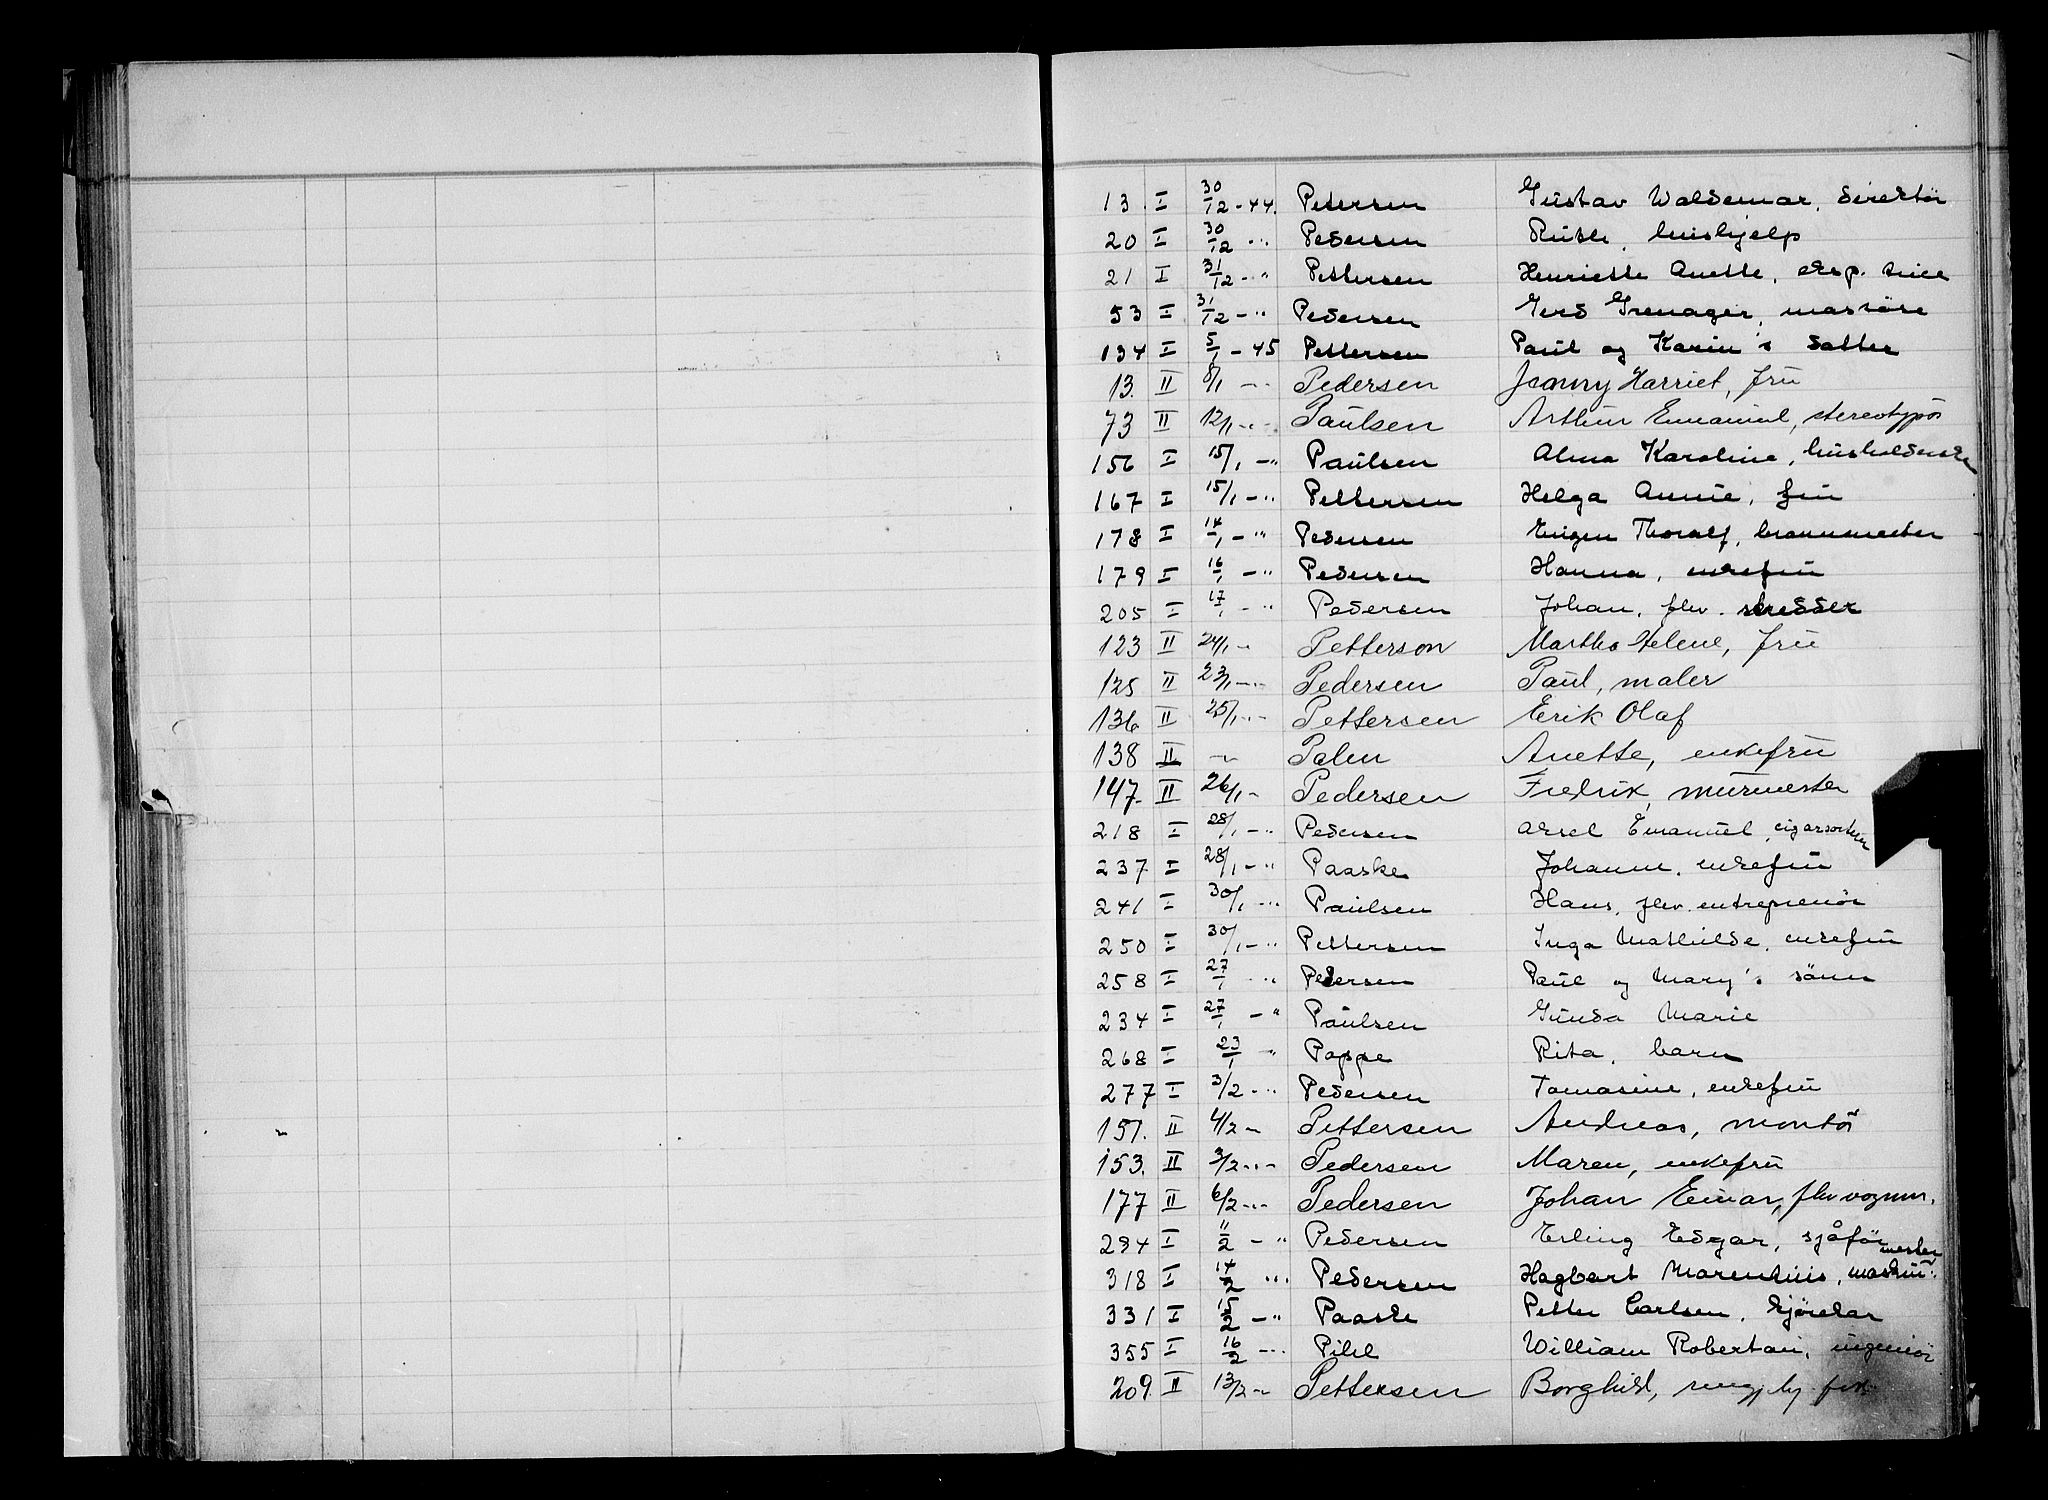 13. I 30/12 - 44. Petersen Gustav Waldemar, direktör
20 I 30/12 - " Pedersen Ruth, hushjelp
21 I 31/12 - " Pettersen Henriette Anette, eksp.
53 I 31/12 - " Pedersen Gerd Grenager, massöse
134 I 5/1 - 45 Pettersen Paul og Karin's datter
13. II 8/1 - " Pedersen Jenny Harriet, frü
73 II 12/1 - " Paulsen Arthur Emanuel, stereotypör
156 I 15/1 - " Paulsen Alma Karoline, husholderske
167 I 15/1 - " Pettersen Helga Annie, frü
178 I 14/1 - " Pedersen Eugen Thoralf, brannmester
179 I 16/1 - " Pedersen Hanna, enkefrü
205 I 17/1 - " Pedersen Johan, fhv. skredder
123 II 24/1 - Petterson Martha Helene, frü
125 II 23/1 - " Pedersen Paul, maler
136 II 25/1 - " Pettersen Erik Olaf
138 II - " - Palen Anette, enkefrü
147. II 26/1 - Pedersen Fredrik, mürmester
218 I 28/1 - " Pedersen Aksel Emanuel, cigarsorterer
237 I 28/1 - " Paaske Johanne, enkefrü
241 I 30/1 - " Paulsen Hans, fhv. entreprenör
250 I 30/1 - " Pettersen Inga Mathilde, enkefrü
258 I 27/1 - " Pedersen Paul og Mary's sönn
234 I 27/1 - " Paulsen Gunda Marie
268 I 23/1 - " Poppe Rita, barn
277 I 3/2 - " Pedersen Tomasine, enkefrü
151. II 4/2 - Pettersen Andreas, montör
153. II 3/2 - " - Pedersen Maren, enkefrü
177 II 6/2 - " Pedersen Johan Einar, fhv vognm.
294 I 11/2 - " Pedersen Erling Edgar, sjåför
318 I 14/2 " Pedersen Hagbart Marentius, maskinmester
331 I 15/2 - " Paaske Petter Carlsen, kjörekar
355 I 16/2 - " Pihl William Robertan, ingeniör
209. II 13/2 - Pettersen Borghild, rengj. hj.